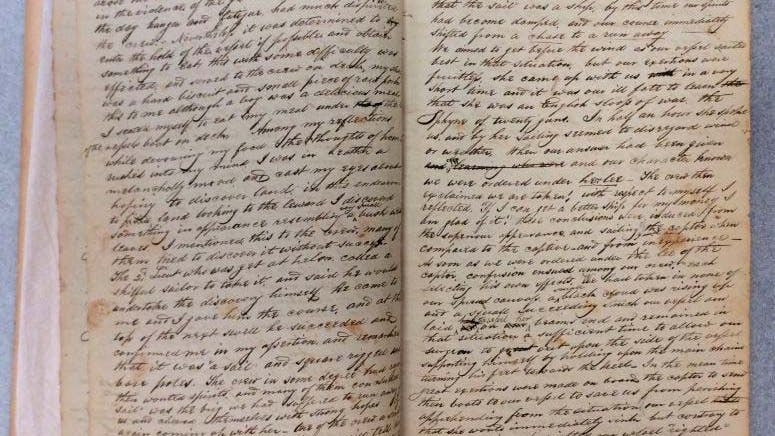 in the violence of the
the day hunger and fatigue had much dispirited
the crew. Nevertheless it was determined to
enter the hold of the vessel if possible and obtain
something to eat this with some difficulty was
effected, and served to the crew on deck, my share
was a hard biscuit and small piece of raw pork
this to me although a boy was a delicious meal
I seated myself to eat my meat under the
the vessels boat on deck. Among my reflections
while devouring my food the thoughts of home
rushed into my mind I was in health a
melancholly mood and cast my eyes about
hoping to discover land, in this endeavor
to find land looking to the leeward I discovered
something in appearance resembling a small bush without
leaves. I mentioned this to the crew, many of
them tried to discover it without success
The 2d Lieut who was yet at helm called a
skilful sailor to take it, and said he would
undertake the discovery himself. He came to
me and I gave him the course, and at the
top of the next swell he succeeded and
confirmed me in my assertion and remarked
that it was a sail and square rigged under
bare poles. The crew in some degree had
their wonted spirits and many of them
sail was the buoy we had suffered to run
us and cheered themselves with strong hopes
again coming up with her. One of the
that the sail was a ship, by this time our spirits
had become damped, and our course immediately
shifted from a chase to a run away
We aimed to get before the wind as our vessel sailed
best in that situation, but our exertions were
fruitless, she came up with us in a very
short time and it was our ill fate to learn
that she was an English sloop of war, the
Sphynx of twenty guns. In half an hour she spoke
us, and by her sailing seemed to disregard wind
or weather. When our answer had been given
and our character known
we were ordered under her lee. The crew then
exclaimed we are taken! with respect to myself I
reflected. If I can get a better ship for my money I
am glad of it! these conclusions were induced from
the superior appearance and sailing the captor when
compared to the captive and from inexperience
As soon as we were ordered under the lee of the
captor confusion ensued among our crew, each
selecting his own effects, we had taken in none of
our spread canvass a black cloud was rising up
and a squall succeeding which our vessel was
laid on beams end and remained in
that situation a sufficient time to allow our
surgeon to upon the side of the vessel
supporting himself by holding upon the main chains
turning his feet towards the keel. In the mean time
great exertions were made on board the captor to send
their boats to our vessel to save us from perishing
apprehending from the situation our vessel
that she would immediately sink but contrary to
our vessel righted